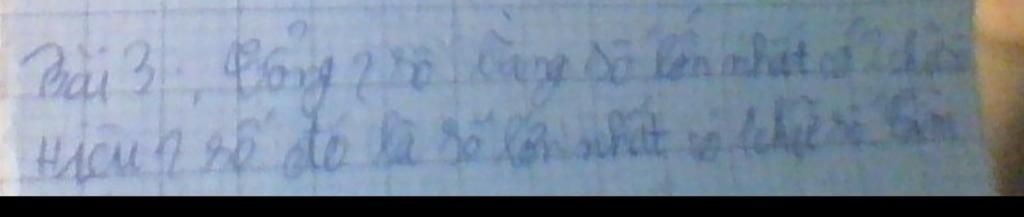 Bài 3. Tổng 2 số bằng số lớn nhất có 2 chữ
Hiệu 2 số đó là số lớn nhất có 1 chữ số. Tìm